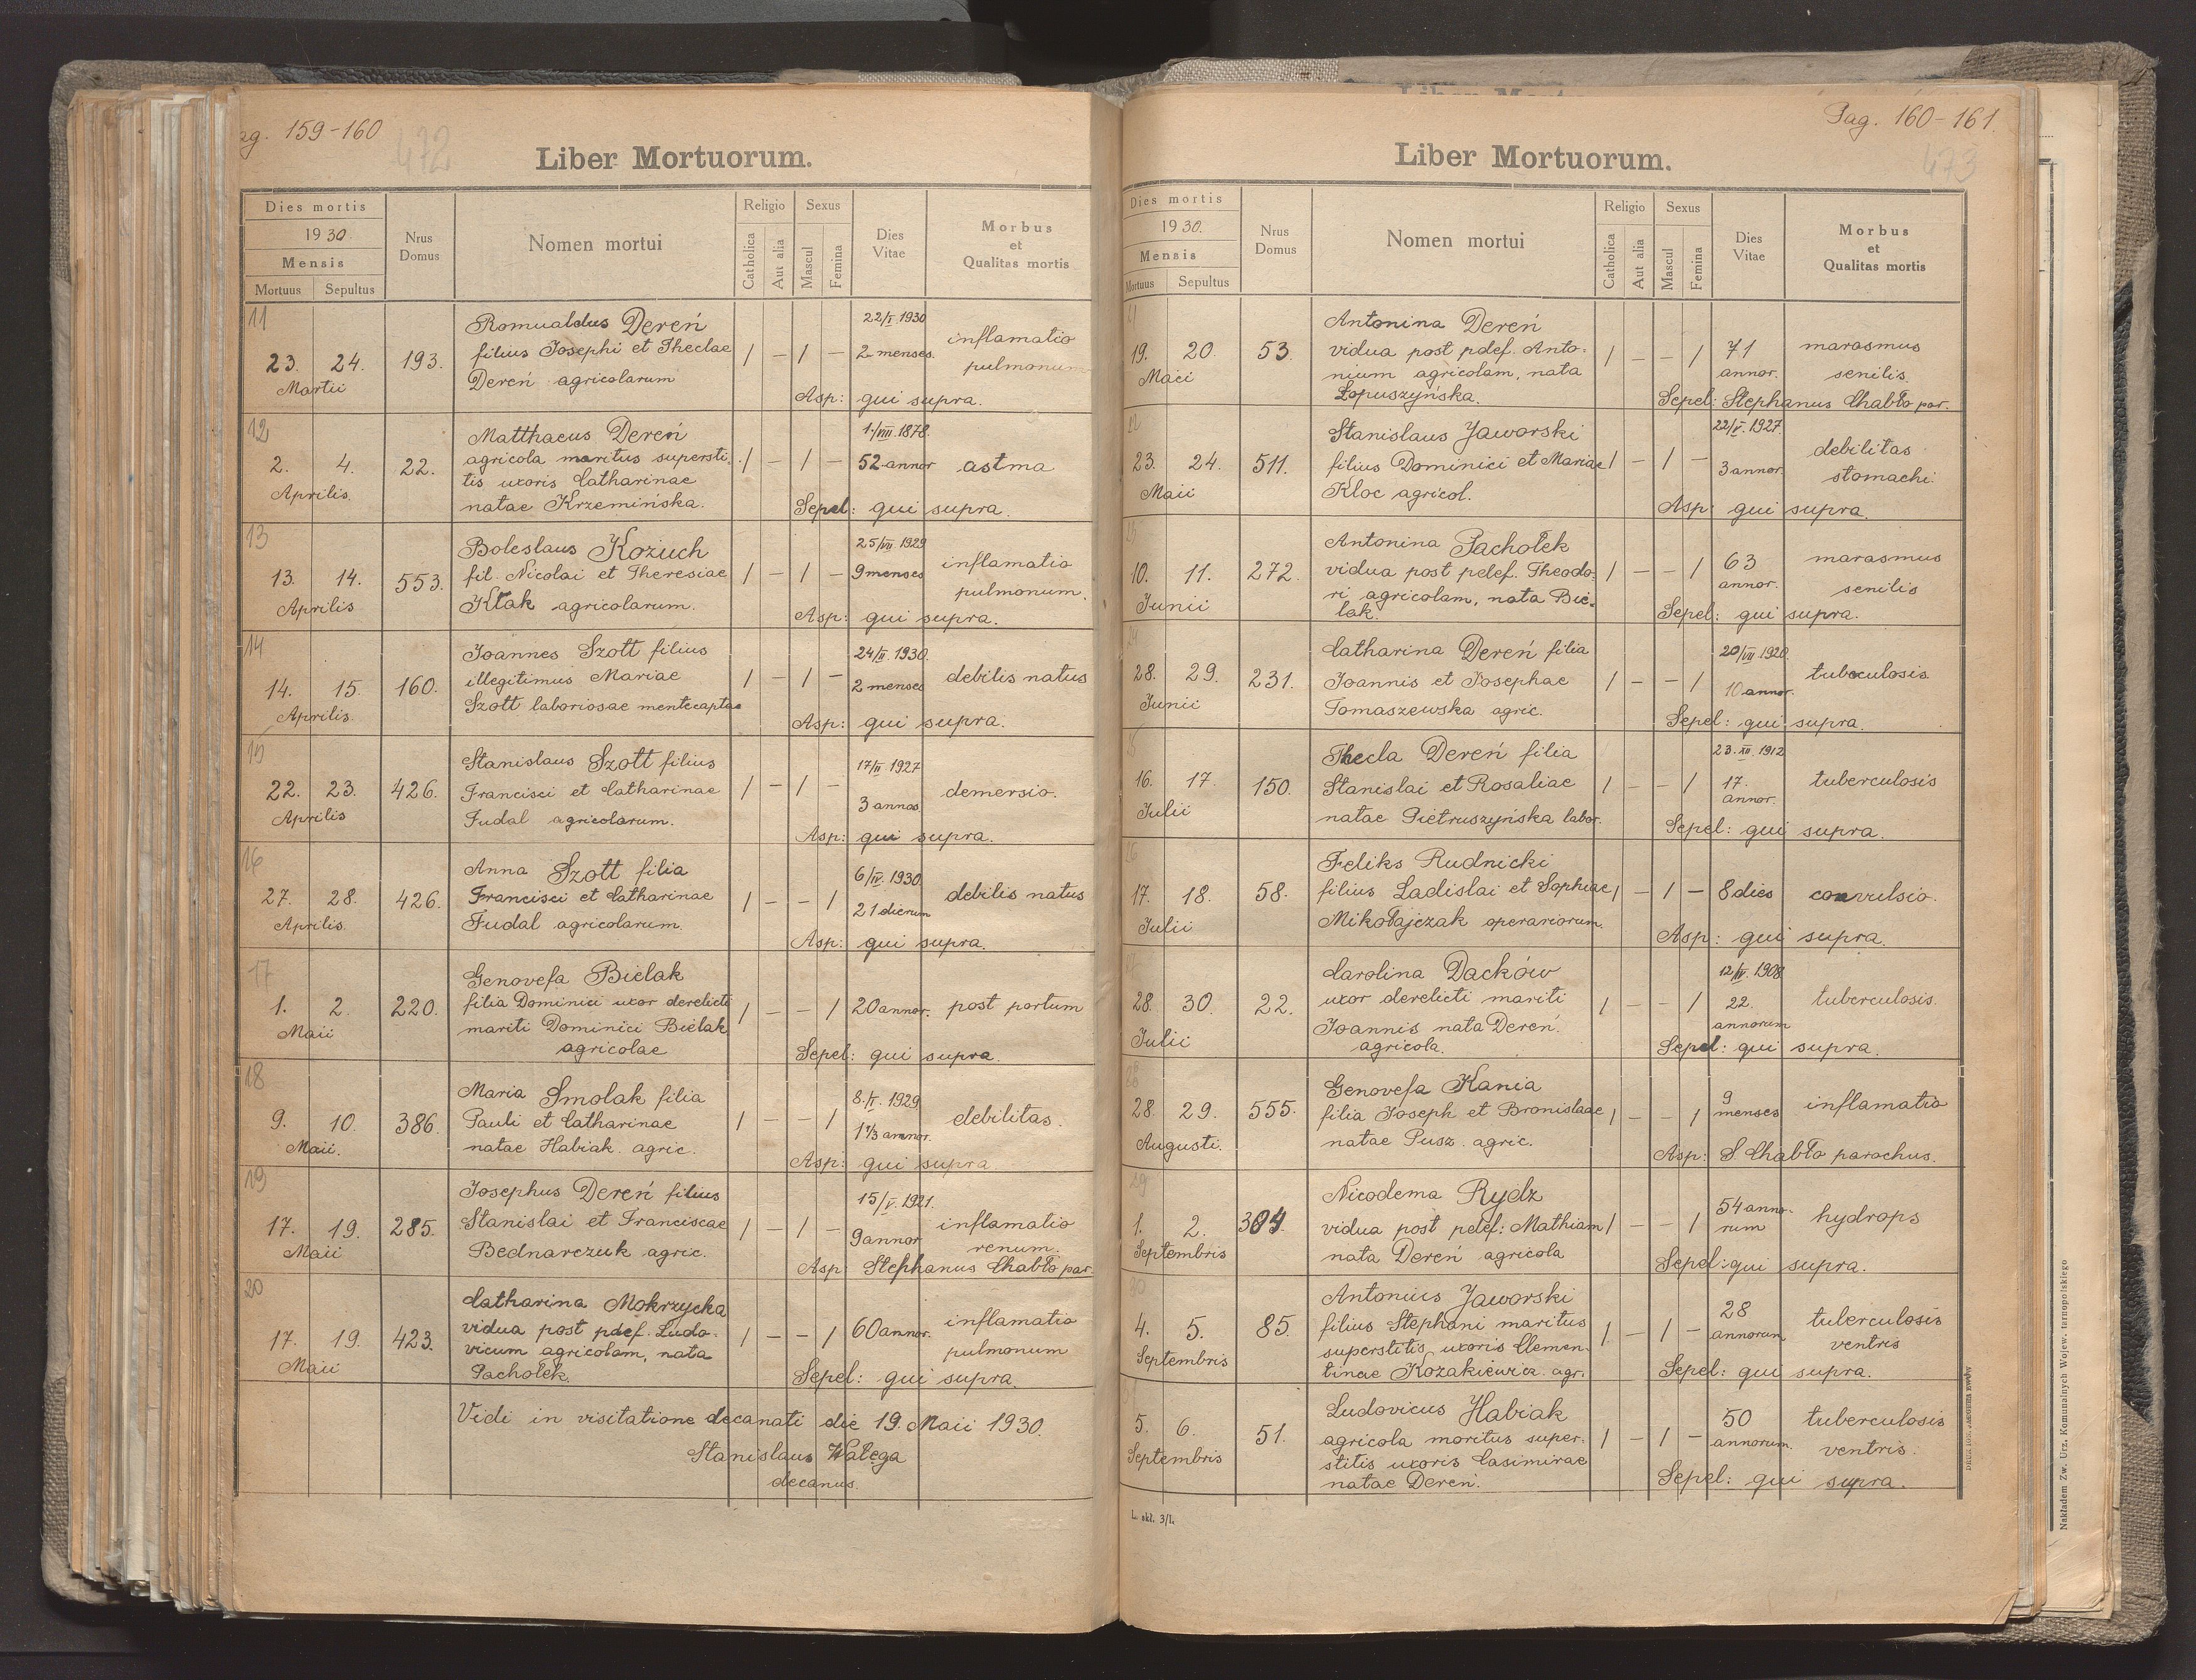 Pag. 159-160
472
Liber Mortuorum.
Dies mortis
1930.
Mensis
Mortuus Sepultus
Nrus Domus
Nomen mortui
Religio
Catholica Aut alia
Sexus
Mascul Femina
Dies Vitae
Morbus et Qualitas mortis
11
23. 24. Martii 193.
Romualdus Dereń
filius Josephi et Theclae
Dereń agricolarum
1 - 1 -
22/I 1930
2 menses.
inflamatio
pulmonum
Asp: qui supra.
12
2. 4. Aprilis. 22.
Matthaeus Dereń
agricola maritus supersti.
tis uxoris Catharinae
natae Krzemińska.
1 - 1 -
1/VIII. 1878.
52 annor
astma
Sepel: qui supra.
13
13. 14. Aprilis 553.
Boleslaus Kożuch
fil. Nicolai et Theresiae
Kłak agricolarum.
1 - 1 -
25/VII 1929
9 menses
inflamatio
pulmonum.
Asp: qui supra.
14
14. 15. Aprilis. 160.
Joannes Szott filius
illegitimus Mariae
Szott laboriosae mentecaptae
1 - 1 -
24/II. 1930.
2 menses
debilis natus
Asp: qui supra.
15
22. 23. Aprilis 426.
Stanislaus Szott filius
Francisci et Catharinae
Fudal agricolarum.
1 - 1 -
17/II 1927
3 annos
demersio.
Asp: qui supra.
16
27. 28. Aprilis. 426.
Anna Szott filia
Francisci et Catharinae
Fudal agricolarum.
1 - - 1
6/IV. 1930.
21 dierum
debilis natus
Asp: qui supra.
17
1. 2. Maii 220.
Genovefa Bielak
filia Dominici uxor derelicti
mariti Dominici Bielak
agricolae
1 - - 1
20 annor.
post partum
Sepel: qui supra.
18
9. 10. Maii. 386.
Maria Smolak filia
Pauli et Catharinae
natae Habiak agric.
1 - - 1
8./I. 1929
1 1/3 annor.
debilitas.
Asp: qui supra
19
17. 19. Maii 285.
Josephus Dereń filius
Stanislai et Franciscae
Bednarczuk agric.
1 - 1 -
15/V. 1921.
9 annor
inflamatio
renum.
Asp: Stephanus Chabło par.
20
17. 19. Maii 423.
Catharina Mokrzycka
vidua post pdef. Ludo-
vicum agricolam, nata
Pachołek.
1 - - 1
60 annor.
inflamatio
pulmonum
Sepel: qui supra.
Vidi in visitatione decanati die 19. Maii 1930.
Stanislaus Wałęga
decanus.
Pag. 160-161.
473
Liber Mortuorum.
Dies mortis
1930.
Mensis
Mortuus Sepultus
Nrus Domus
Nomen mortui
Religio
Catholica Aut alia
Sexus
Mascul Femina
Dies Vitae
Morbus et Qualitas mortis
21
19. 20. Maii 53.
Antonina Dereń
vidua post pdef. Anto-
nium agricolam, nata
Łopuszyńska.
1 - - 1
71
annor.
marasmus
senilis.
Sepel: Stephanus Chabło par.
22
23. 24. Maii 511.
Stanislaus Jaworski
filius Dominici et Mariae
Kloc agricol.
1 - 1 -
22/V. 1927.
3 annor.
debilitas
stomachi.
Asp: qui supra.
23
10. 11. Junii 272.
Antonina Pachołek
vidua post pdef. Theodo-
ri agricolam, nata Bie-
lak.
1 - - 1
63
annor.
marasmus
senilis
Sepel: qui supra.
24
28. 29. Junii 231.
Catharina Dereń filia
Joannis et Josephae
Tomaszewska agric.
1 - - 1
20/VII 1920.
10 annor.
tuberculosis
Sepel: qui supra.
25
16. 17. Julii 150.
Thecla Dereń filia
Stanislai et Rosaliae
natae Pietruszyńska labor.
1 - - 1
23. XII. 1912
17.
annor.
tuberculosis
Sepel: qui supra.
26
17. 18. Julii 58.
Feliks Rudnicki
filius Ladislai et Sophiae
Mikołajczak operariorum.
1 - 1 -
8 dies
convulsio.
Asp: qui supra.
28. 30. Julii 22.
Carolina Dacków
uxor derelicti mariti
Joannis nata Dereń.
agricola.
1 - - 1
12/IV. 1908
22.
annorum
tuberculosis.
Sepel: qui supra.
28
28. 29. Augusti. 555.
Genovefa Kania
filia Joseph et Bronislaae
natae Pusz. agric.
1 - - 1
9
menses
inflamatio
Asp: S. Chabło parochus.
29
1. 2. Septembris 304.
Nicodema Rydz
vidua post pdef: Mathiam
nata Dereń agricola
1 - - 1
54 anno-
rum
hydrops
Sepel: qui supra.
30
4. 5. Septembris 85.
Antonius Jaworski
filius Stephani maritus
superstitis uxoris Clemen-
tinae Kozakiewicz agr.
1 - 1 -
28
annorum
tuberculosis
ventris
Sepel: qui supra.
5. 6. Septembris 51.
Ludovicus Habiak
agricola moritus super-
stitis uxoris Casimirae
natae Dereń.
1 - 1 -
50
annorum.
tuberculosis
ventris.
Sepel: qui supra.
L. skł. 3/L.
Nakładem Zw. Urz. Komunalnych Wojew. tarnopolskiego